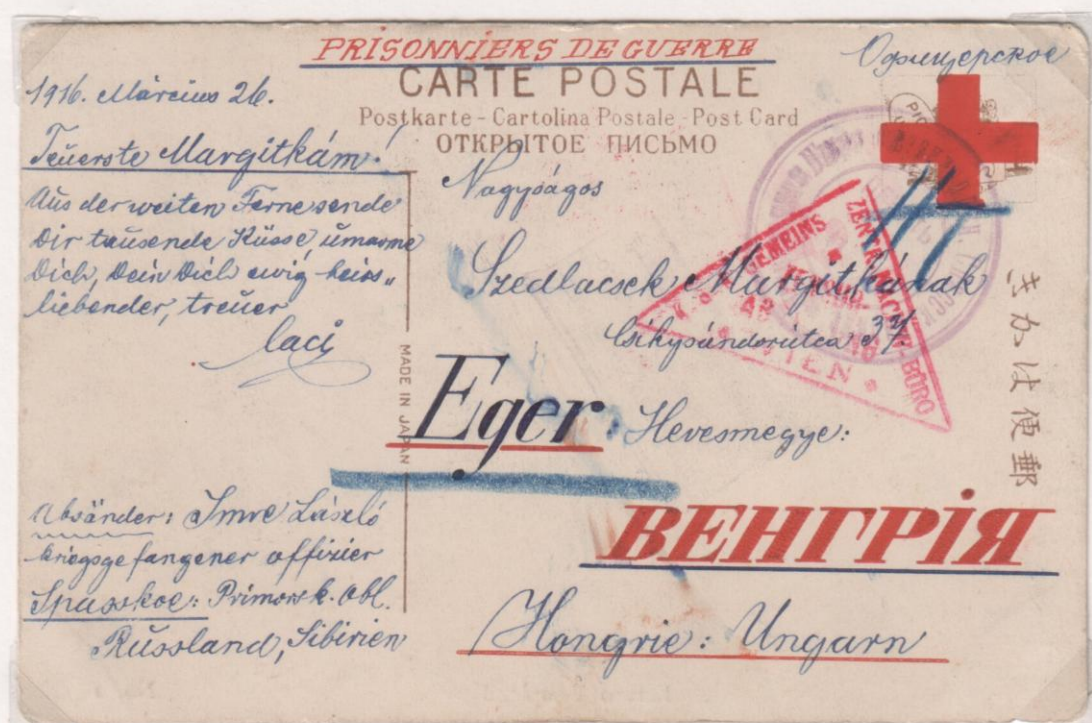 PRISONNIERS DE GUERRE
Офицерское
CARTE POSTALE
Postkarte - Cartolina Postale - Post Card
ОТКРЫТОЕ ПИСЬМО
1916. Március 26.
Teuerste Margitkám!
Aus der weiten Ferne sende
Dir tausende Küsse umarme
Dich, Dein Dich ewig heiss„
liebender, treuer
Laci
Absänder: Imre László
kriegsgefangener offizier
Spasskoe: Primorsk. obl.
Russland, Sibirien
MADE IN JAPAN
Nagyságos
Szedlacsek Margitkának
Csikysándorutca 37
Eger. Hevesmegye:
ВЕНГРІЯ
Hongrie: Ungarn
GEMEINS
ZENTR. NACHW. BÜRO
WIEN
きかは便郵